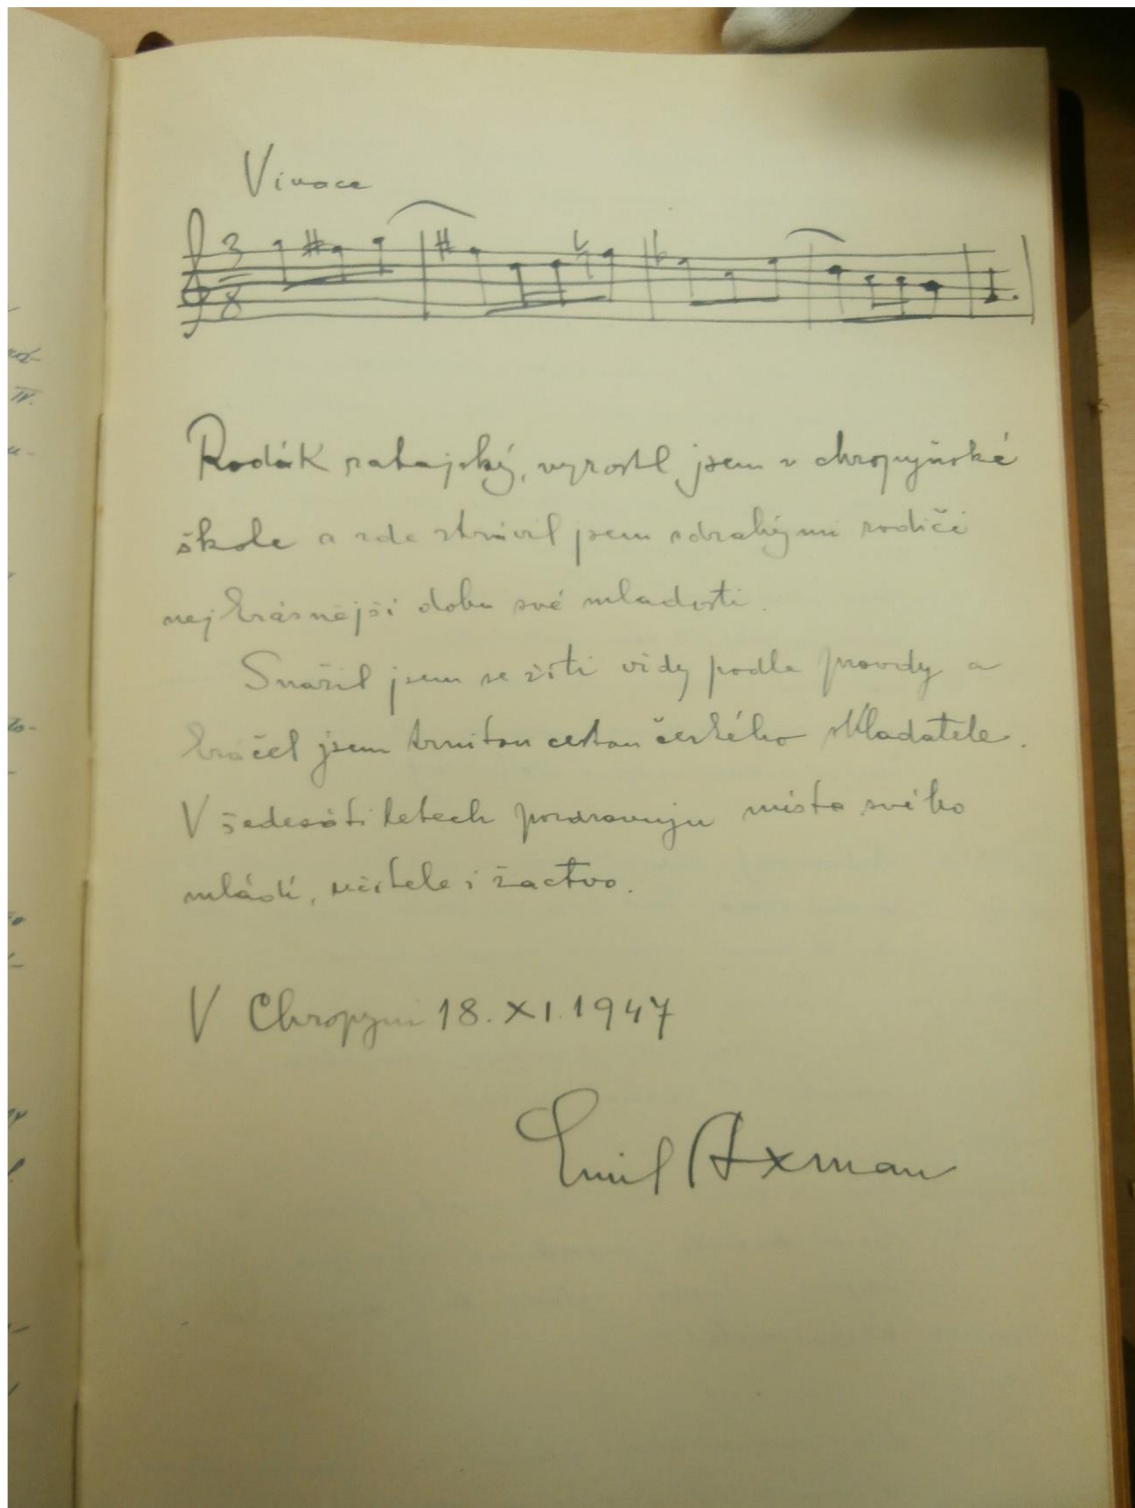 Vivace
3
8
Rodák ratajský, vyrostl jsem v chropyňské
škole a zde strávil jsem s drahými rodiči
nejkrásnější dobu své mladosti.
Snažil jsem se žíti vždy podle pravdy a
kráčel jsem trnitou cestou českého skladatele.
V šedesáti letech pozdravuju místo svého
mládí, učitele i žactvo.
V Chropyni 18. XI. 1947
Emil Axman